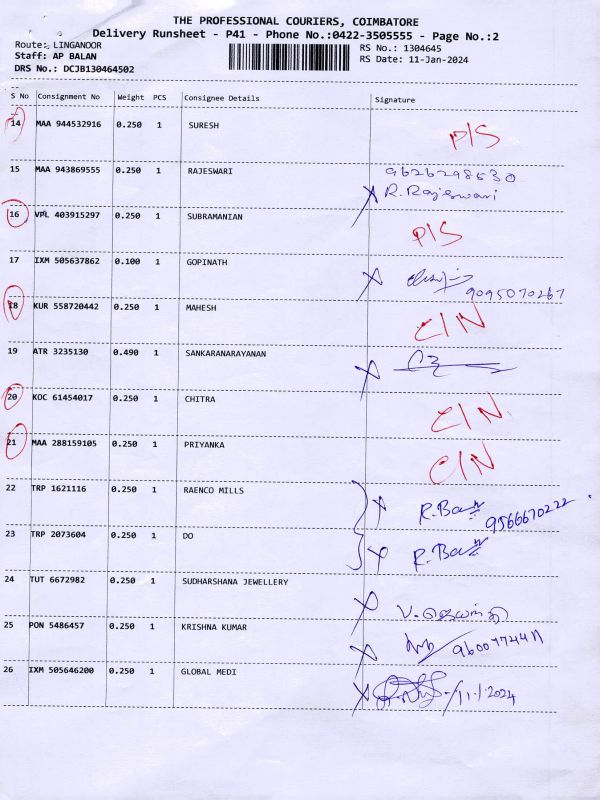 THE PROFESSIONAL COURIERS, COIMBATORE
Delivery Runsheet - P41 - Phone No.:0422-3505555 - Page No.:2
Route: LINGANOOR RS No.: 1304645
Staff: AP BALAN RS Date: 11-Jan-2024
DRS No.: DCJB130464502
S No Consignment No Weight PCS Consignee Details Signature
14 MAA 944532916 0.250 1 SURESH P/S
15 MAA 943869555 0.250 1 RAJESWARI 9626298530
R. Rajeswari
16 VPL 403915297 0.250 1 SUBRAMANIAN P/S
17 IXM 505637862 0.100 1 GOPINATH 9095070267
18 KUR 558720442 0.250 1 MAHESH C/N
19 ATR 3235130 0.490 1 SANKARANARAYANAN
20 KOC 61454017 0.250 1 CHITRA C/N
21 MAA 288159105 0.250 1 PRIYANKA C/N
22 TRP 1621116 0.250 1 RAENCO MILLS 9566670222
23 TRP 2073604 0.250 1 DO
24 TUT 6672982 0.250 1 SUDHARSHANA JEWELLERY
25 PON 5486457 0.250 1 KRISHNA KUMAR
26 IXM 505646200 0.250 1 GLOBAL MEDI 11.1.2024